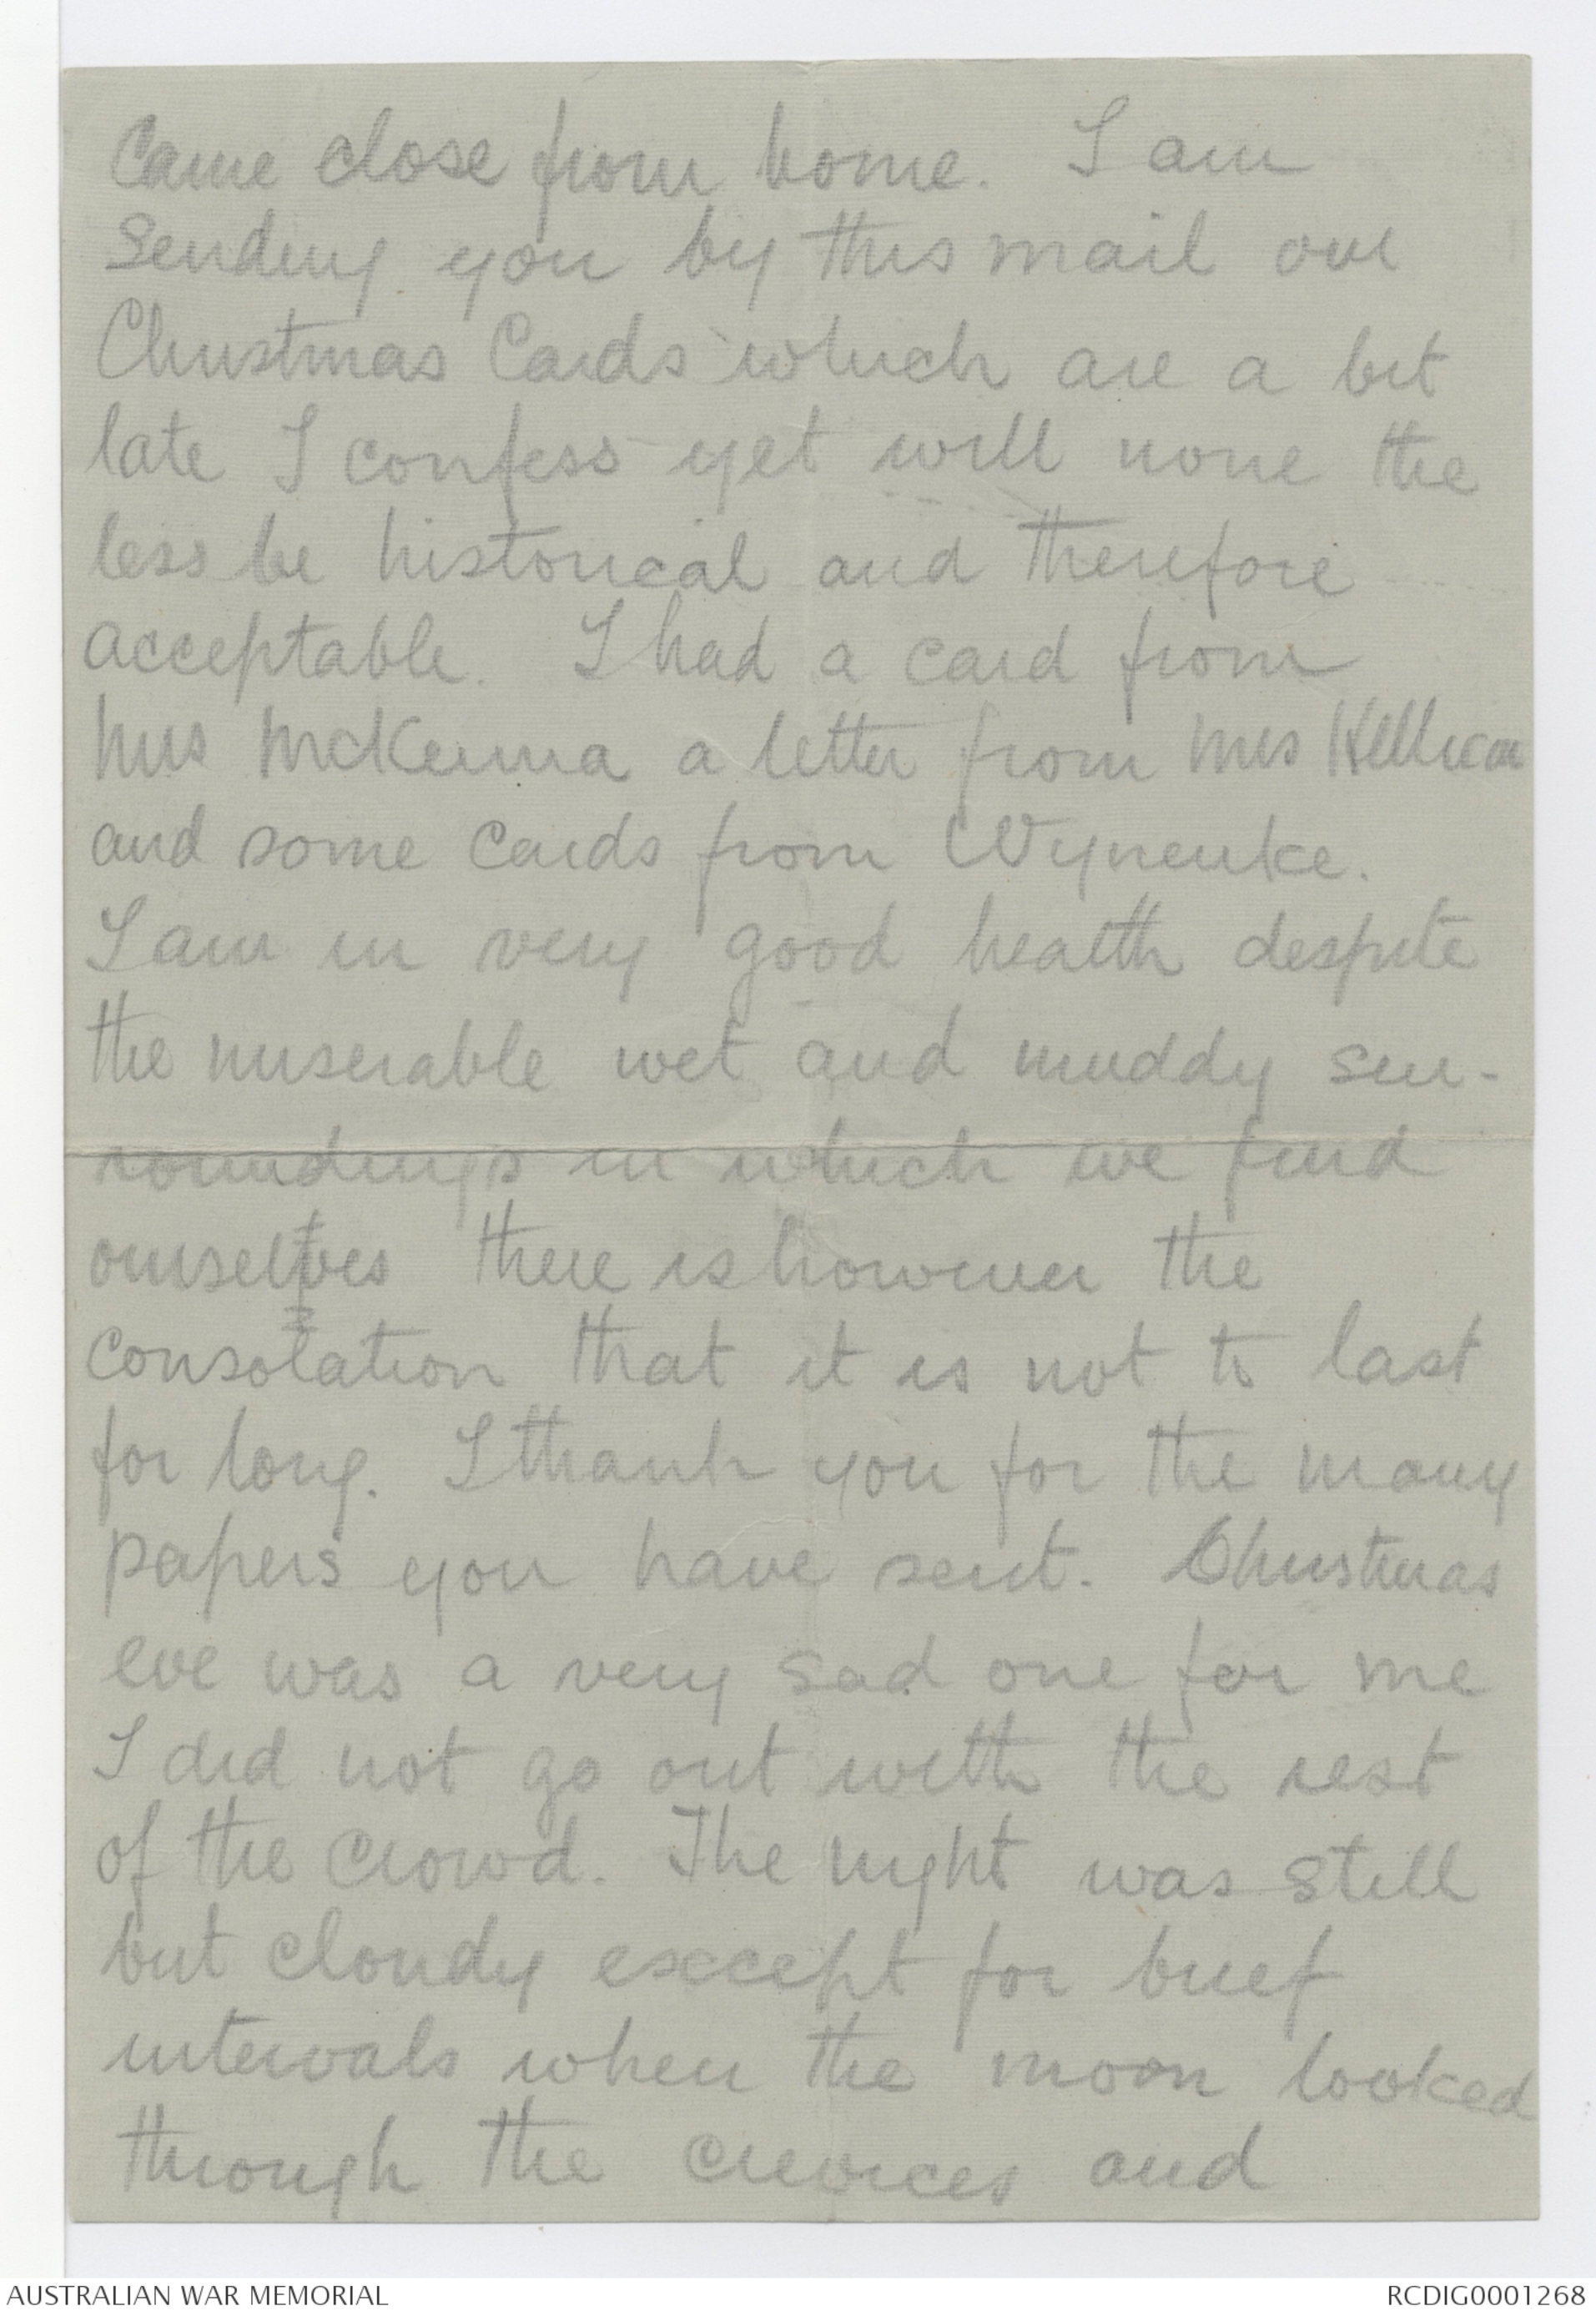 Came close from home. I am
Sending you by this mail our
Christmas Cards which are a bit
late I confess yet will none the
less be historical and therefore
acceptable. I had a card from
Mrs McKenna a letter from Mrs
and some cards from Wynenke.
I am in very good health despite
the miserable wet and muddy sur-
roundings in which we find
ourselves there is however the
consolation that it is not to last
for long. I thank you for the many
papers you have sent. Christmas
eve was a very sad one for me
I did not go out with the rest
of the crowd. The night was still
but cloudy except for brief
intervals when the moon looked
through the crevices and
AUSTRALIAN WAR MEMORIAL
RCDIG0001268